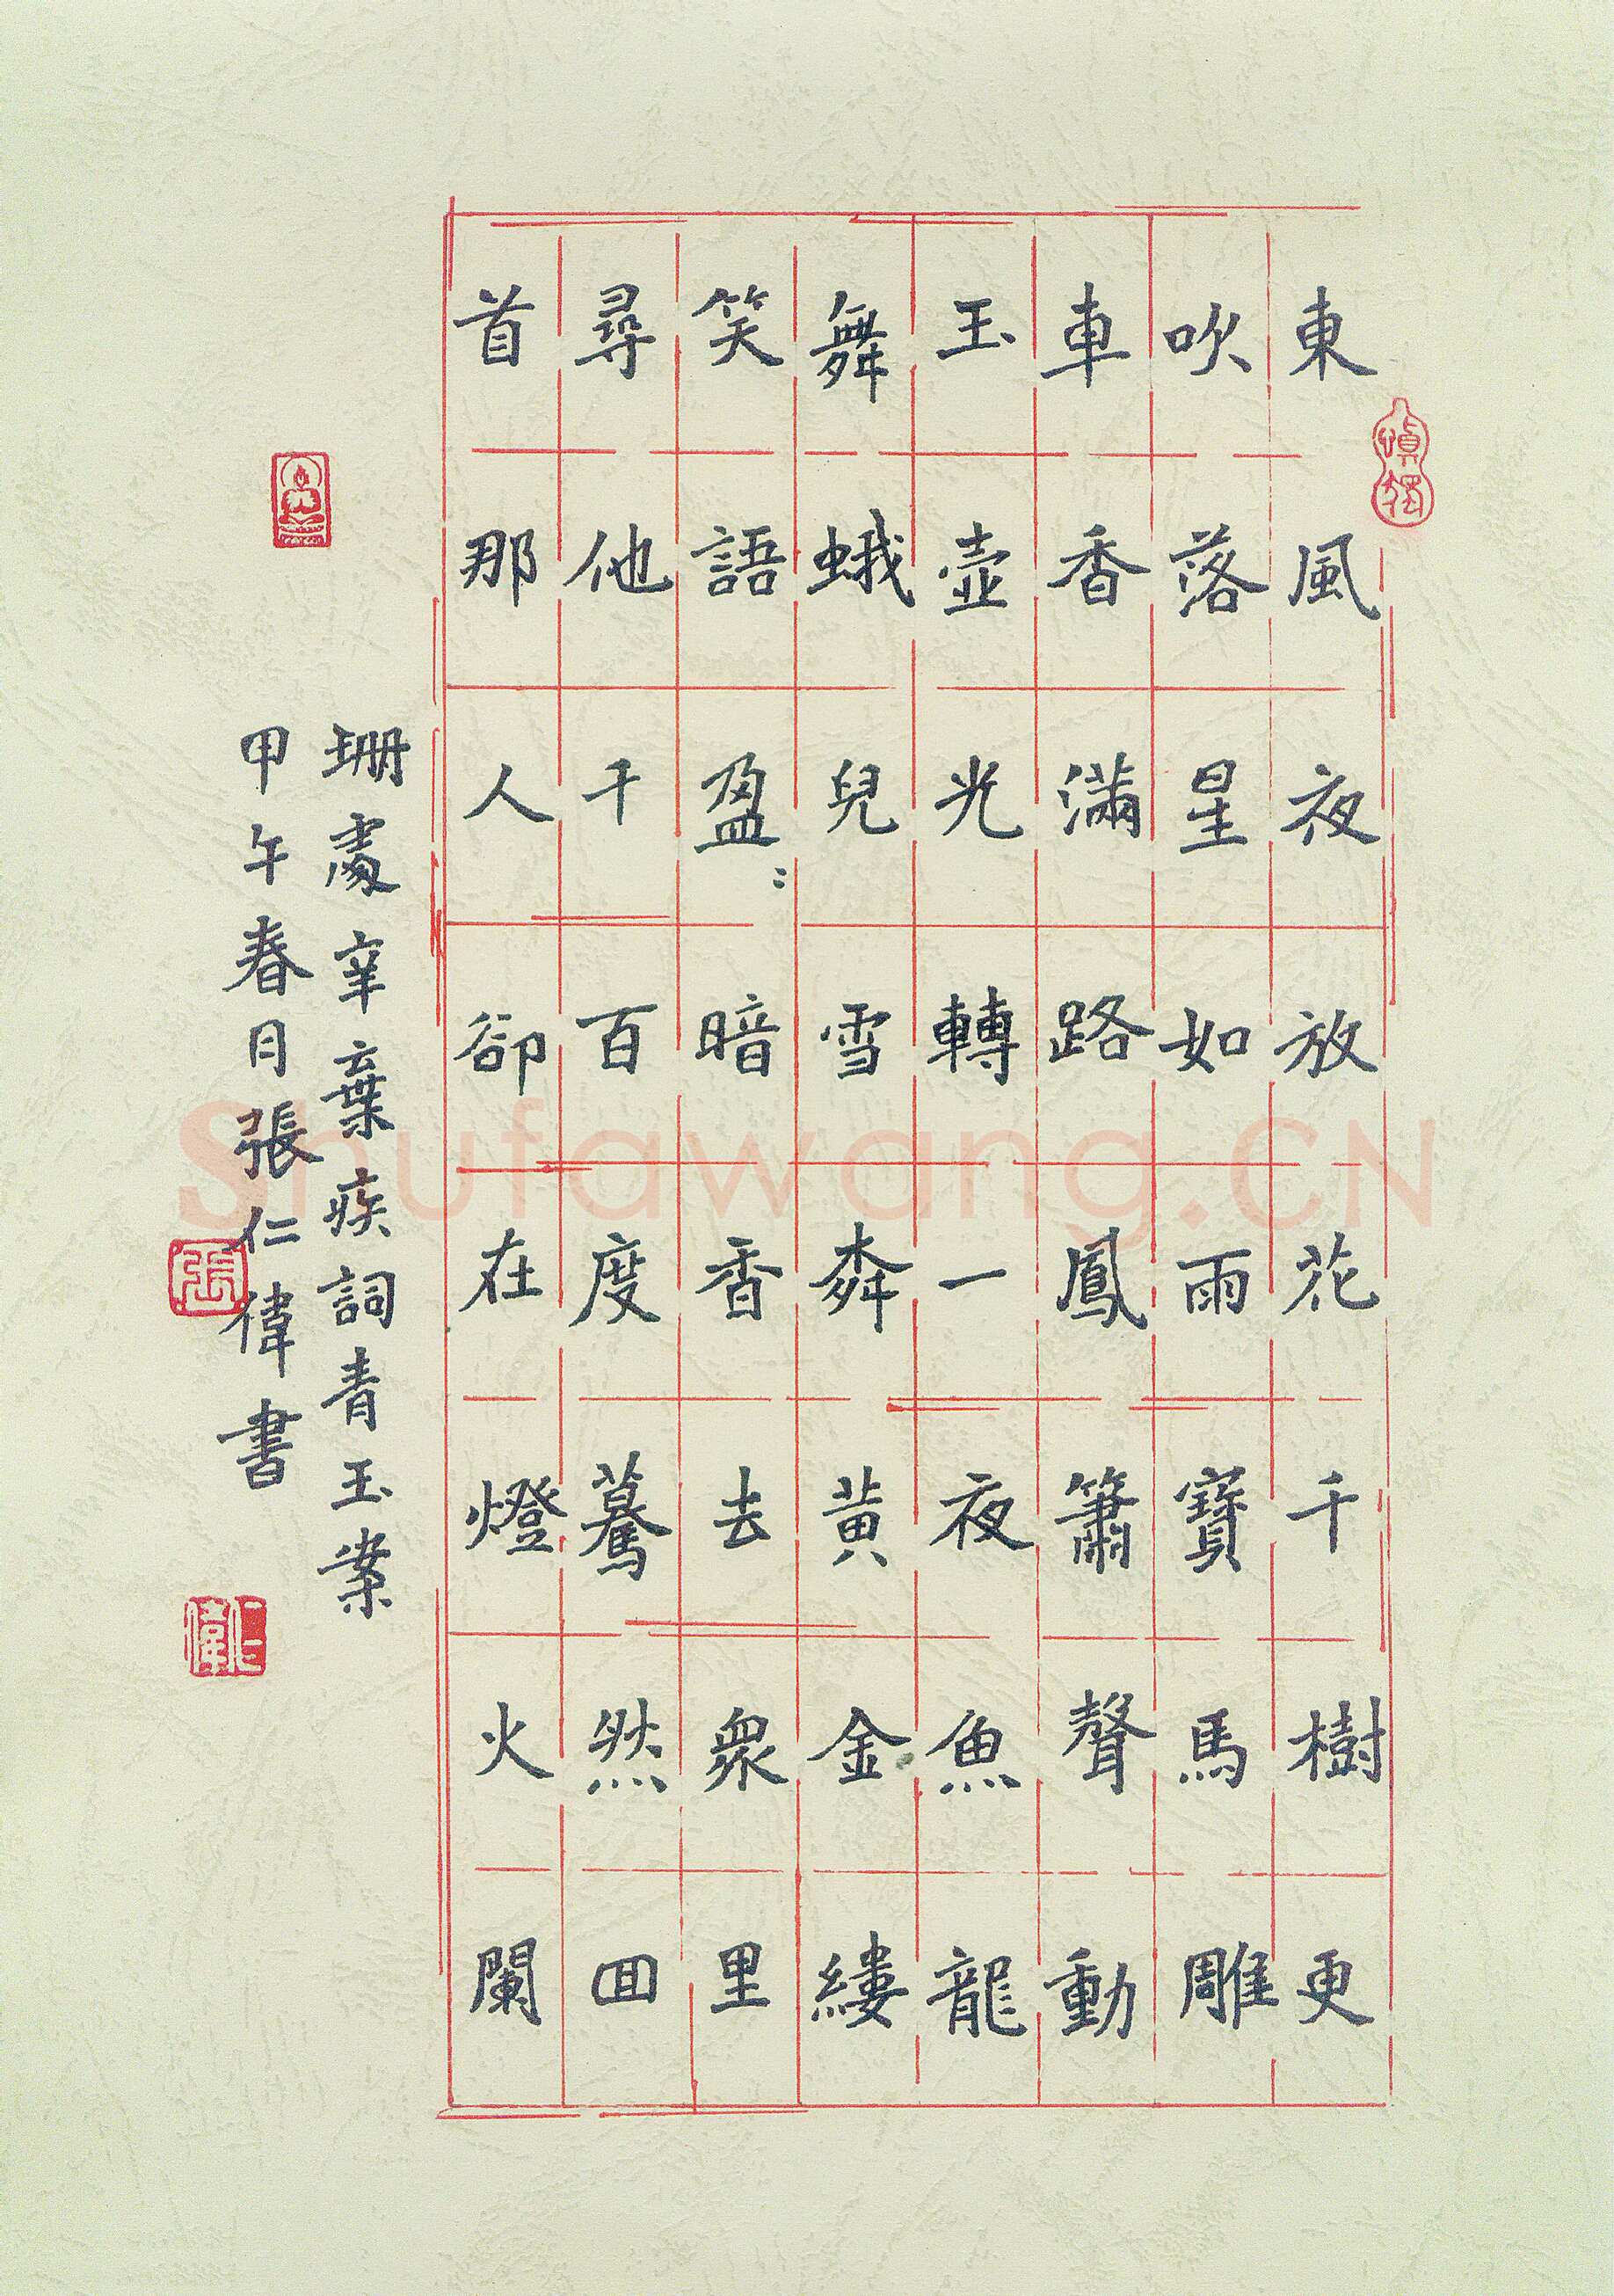 東風夜放花千樹更
吹落星如雨寶馬雕
車香滿路鳳簫聲動
玉壺光轉一夜魚龍
舞蛾兒雪柳黃金縷
笑語盈〻暗香去眾里
尋他千百度驀然囬
首那人卻在燈火闌
珊處辛棄疾詞青玉案
甲午春月張仁偉書
慎獨
張
仁偉
Shufawang.CN